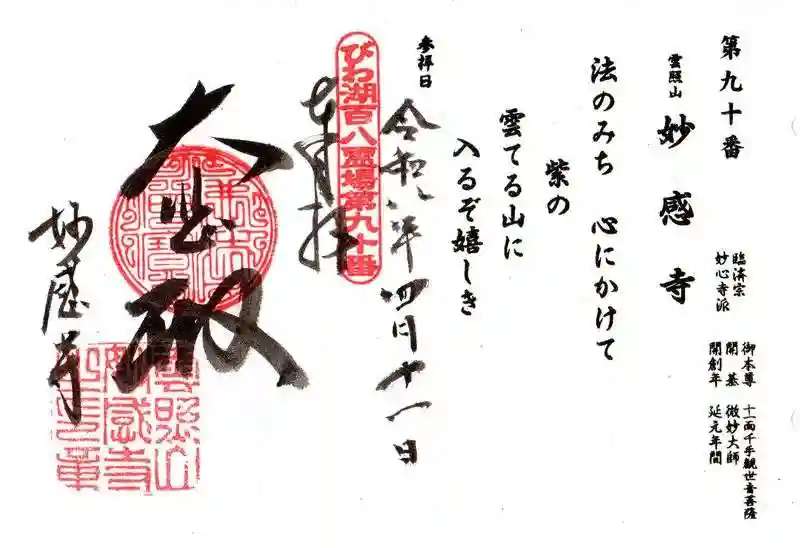 第九十番
雲照山 妙感寺
臨済宗
妙心寺派
御本尊 十一面千手観世音菩薩
開基 微妙大師
開創年 延元年間
法のみち 心にかけて
紫の
雲てる山に
入るぞ嬉しき
参拝日
令和八年四月十一日
びわ湖百八霊場第九十番
奉拝
大悲殿
妙感寺
雲照山
妙感寺